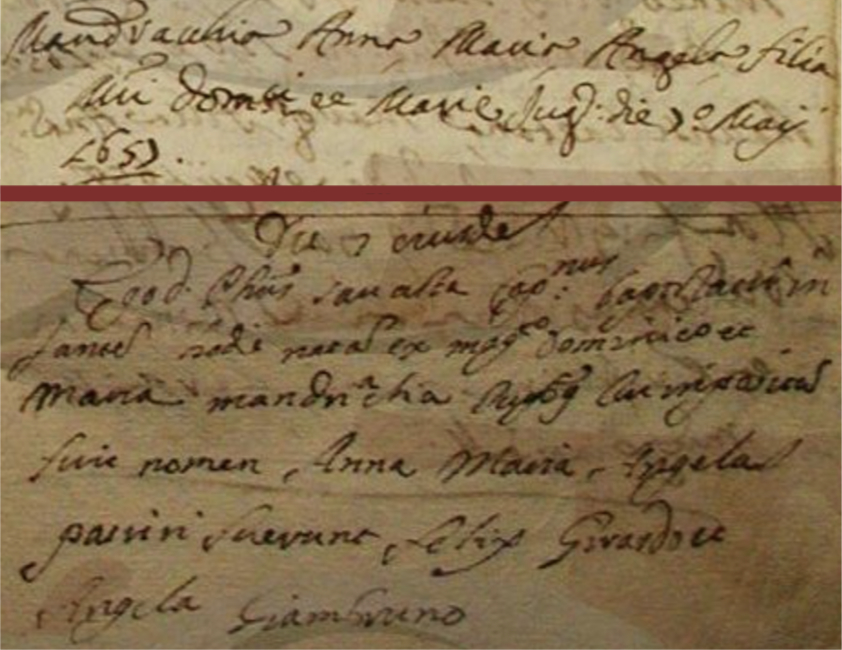 Mandracchia Anna Maria Angela filia
Mri domci et Marie Jug: die 7º Maij
1657.
Die 7 eiusdem
Ego D. Chus sauatta Cap.nus baptizaui in
fantem hodie natam ex magco Dominico et
Maria mandracchia cui impositum
fuit nomen Anna Maria Angela
patrini fuerunt felix Girardo et
Angela Giambruno